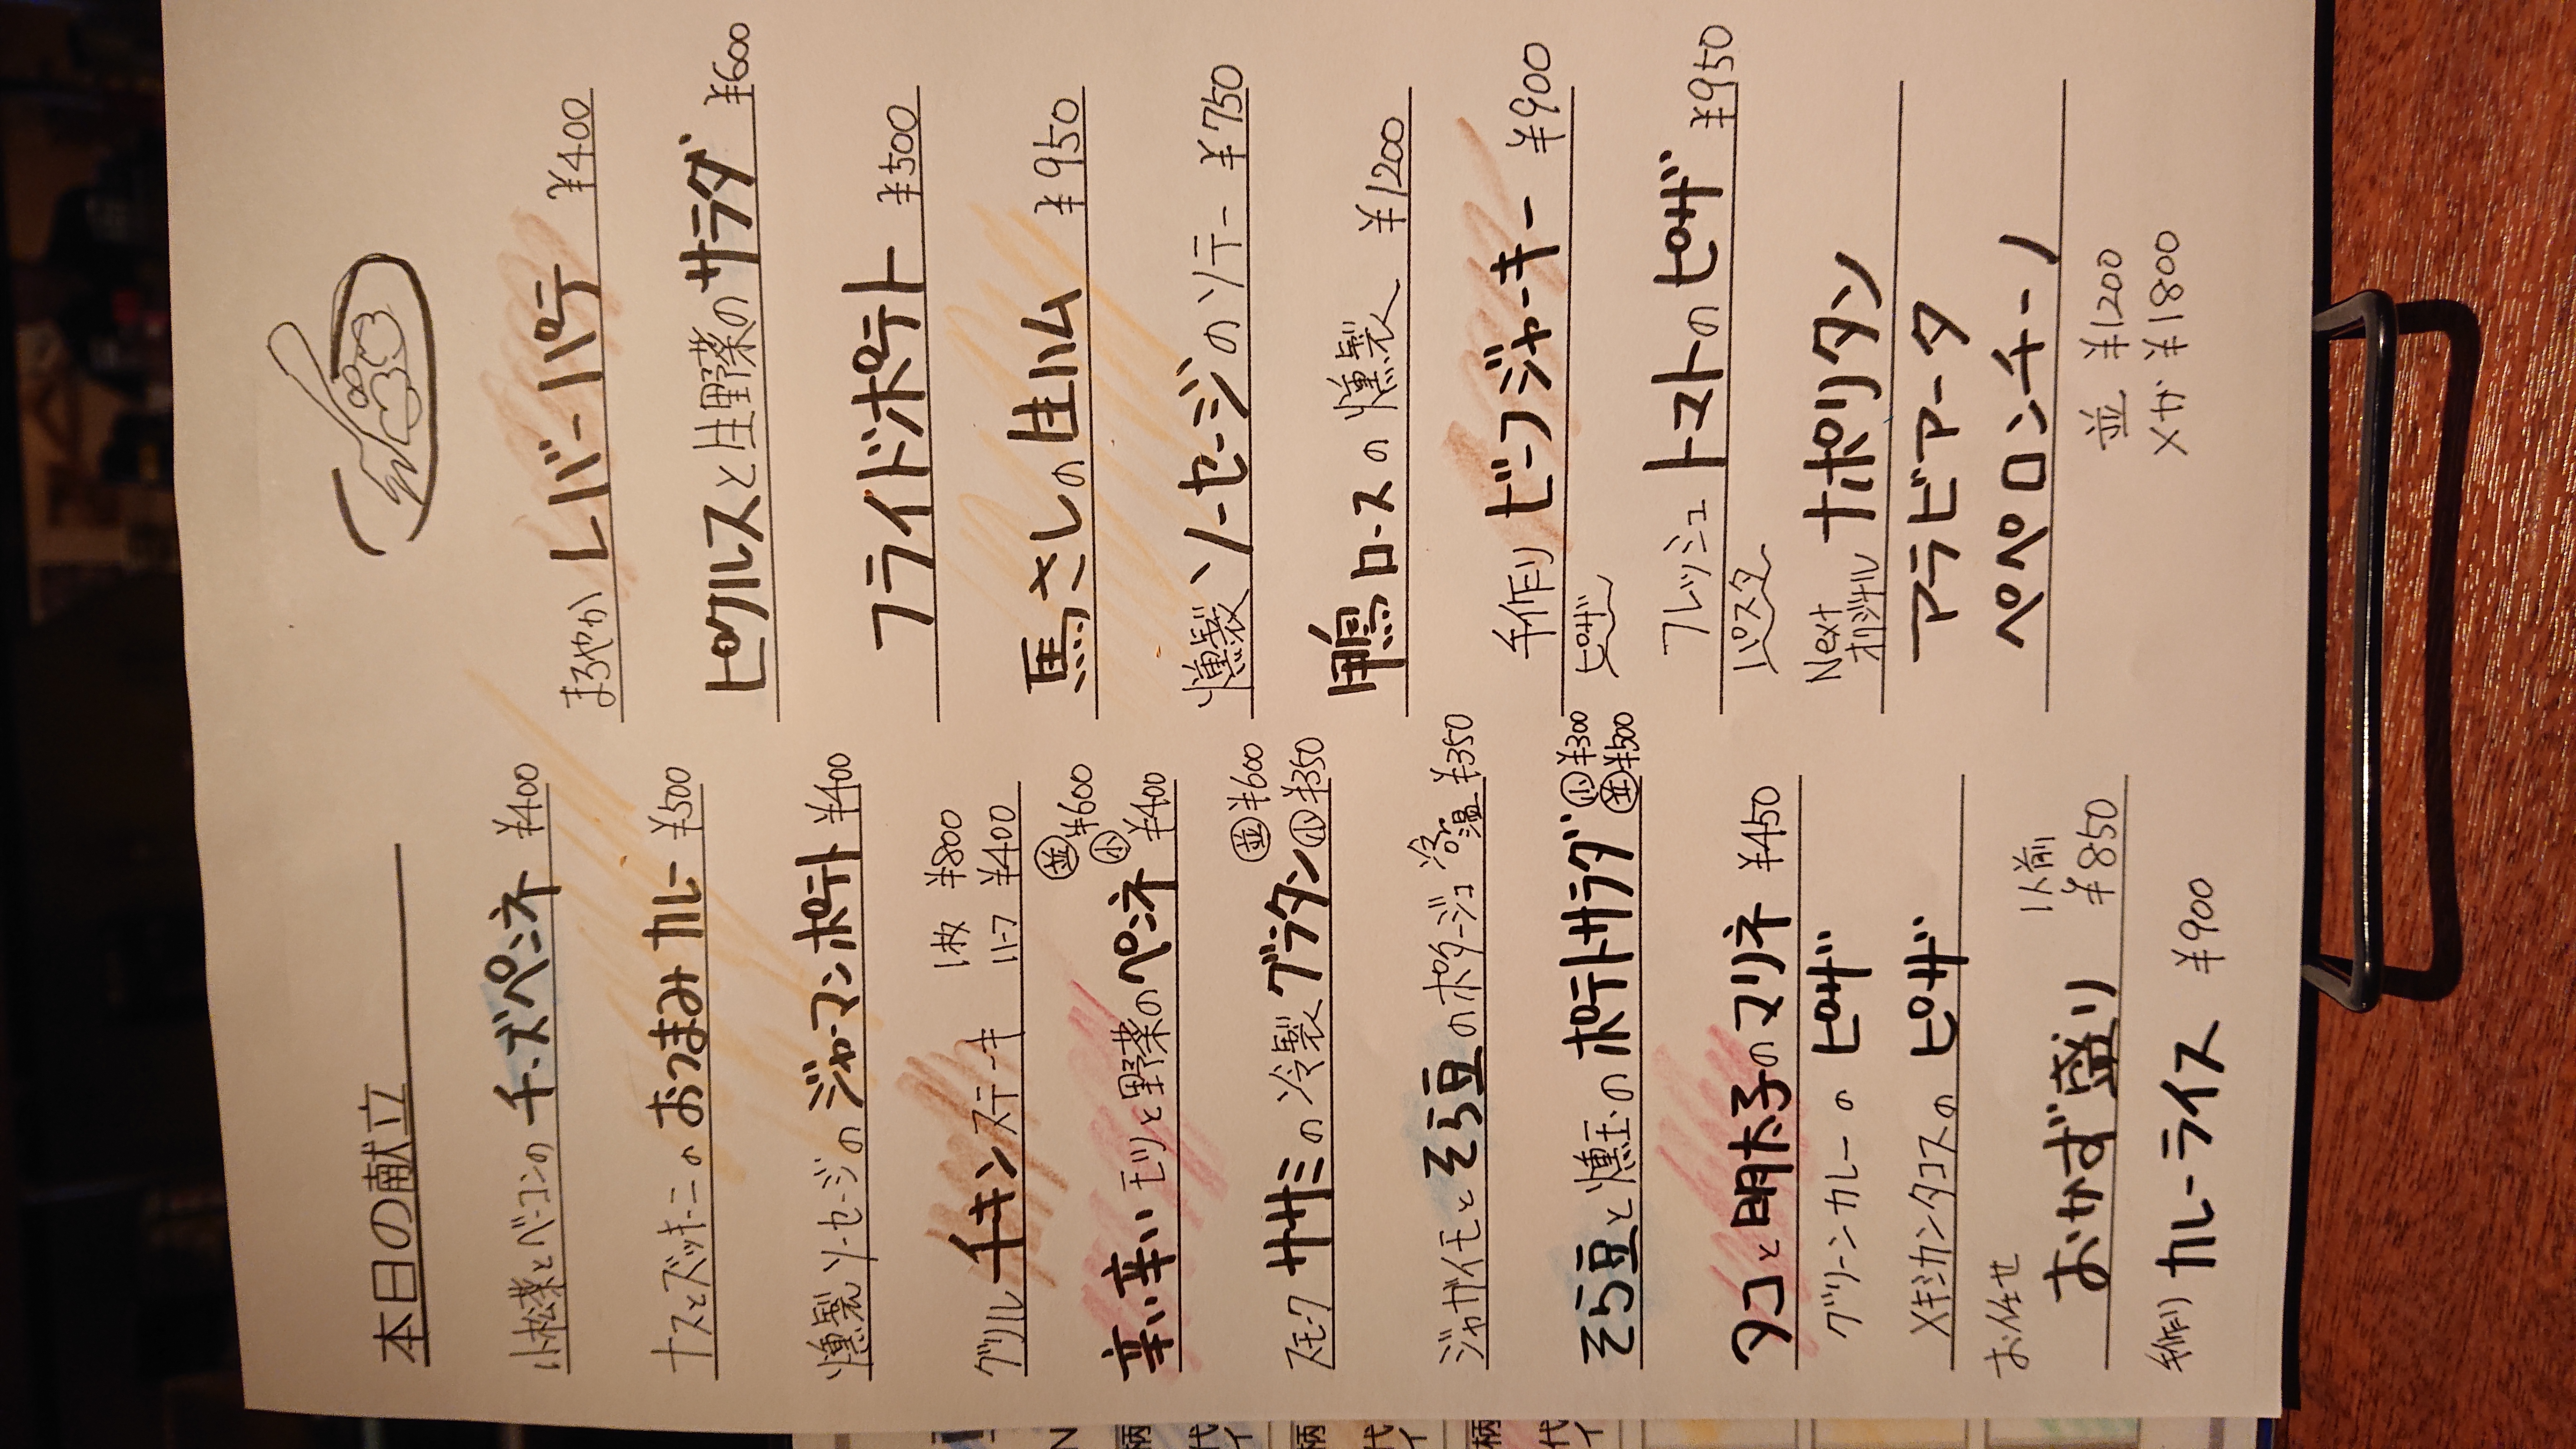 本日の献立
小松菜とベーコンの チーズペンネ ¥400
ナスとズッキーニの おつまみカレー ¥500
燻製ソーセージの ジャーマンポテト ¥400
グリル チキンステーキ 1枚 ¥800
ハーフ ¥400
辛い辛いモツと野菜のペンネ 並 ¥600
小 ¥400
スモーク ササミの冷製グラタン 並 ¥600
小 ¥350
ジャガイモとそら豆のポタージュ 冷 温 ¥350
そら豆と燻玉のポテトサラダ 小 ¥300
並 ¥500
タコと明太子のマリネ ¥450
グリーンカレーの ピザ
メキシカンタコスの ピザ
お任せ おかず盛り 1人前
¥850
手作り カレーライス ¥900
まろやか レバーパテ ¥400
ピクルスと生野菜のサラダ ¥600
フライドポテト ¥500
馬さしの生ハム ¥950
燻製ソーセージのソテー ¥750
鴨ロースの燻製 ¥1200
手作り ビーフジャーキー ¥900
ピザ
フレッシュトマトのピザ ¥950
パスタ
Next
オリジナル ナポリタン
アラビアータ
ペペロンチーノ
並 ¥1200
メガ ¥1800